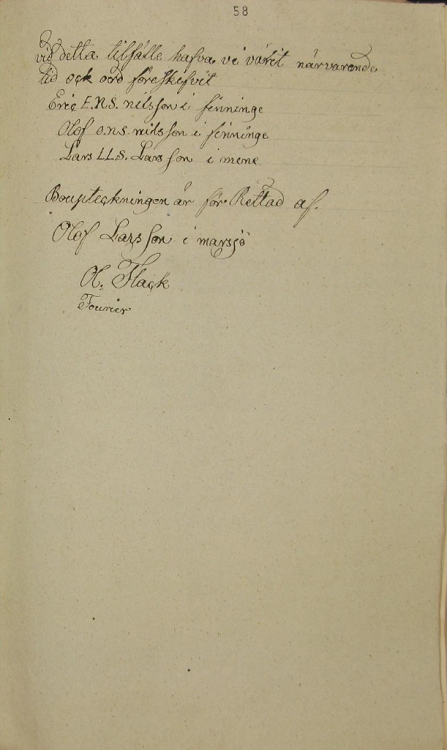 58
vid detta tilfälle hafva vi varit närvarende
tid ock ord föreskrifvit
Eric E.N.S. nilsson i finninge
Olof O.N.S. nilsson i finninge
Lars L.L.S. Larsson i mene
Boupteckningen är för Rettad af.
Olof Larsson i marsjö
Ol. Flack
Fourier